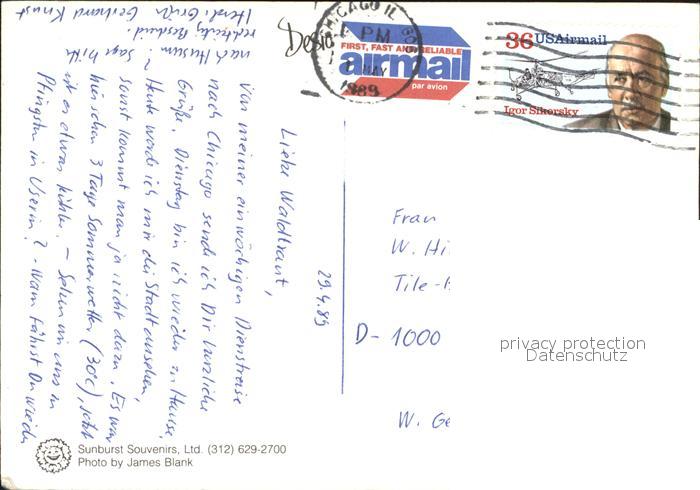 29.4.89
Liebe Waldtraut,
Von meiner einwöchigen Dienstreise
nach Chicago sende ich Dir herzliche
Grüße. Dienstag bin ich wieder zu Hause,
Heute werde ich mir die Stadt ansehen,
sonst kommt man ja nicht dazu. Es war
hier schon 3 Tage Sommerwetter (30°C), jetzt
ist es etwas kühler. – Sehen wir uns zu
Pfingsten in Userin? - Wann fährst Du wieder
nach Husum? Sage bitte
rechtzeitig Bescheid.
Herzl. Grüße Gerhard
Frau
W. Hi
Tile-
D- 1000
W. Ge
CHICAGO IL
PM
MAY
1989
FIRST, FAST AND RELIABLE
airmail
par avion
36 USAirmail
Igor Sikorsky
privacy protection
Datenschutz
Sunburst Souvenirs, Ltd. (312) 629-2700
Photo by James Blank